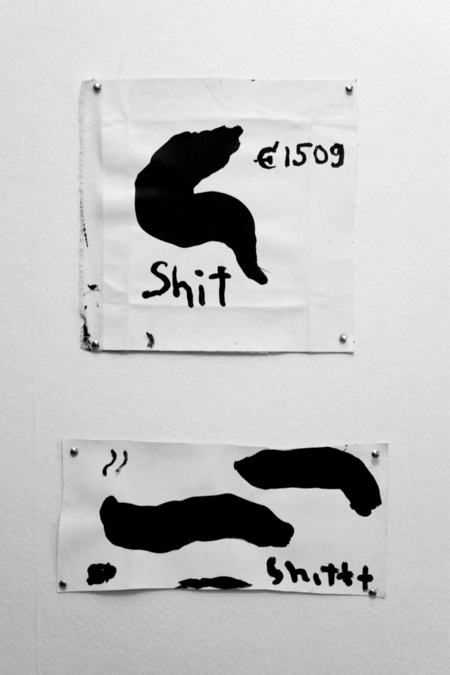 €1509
Shit
Shittt